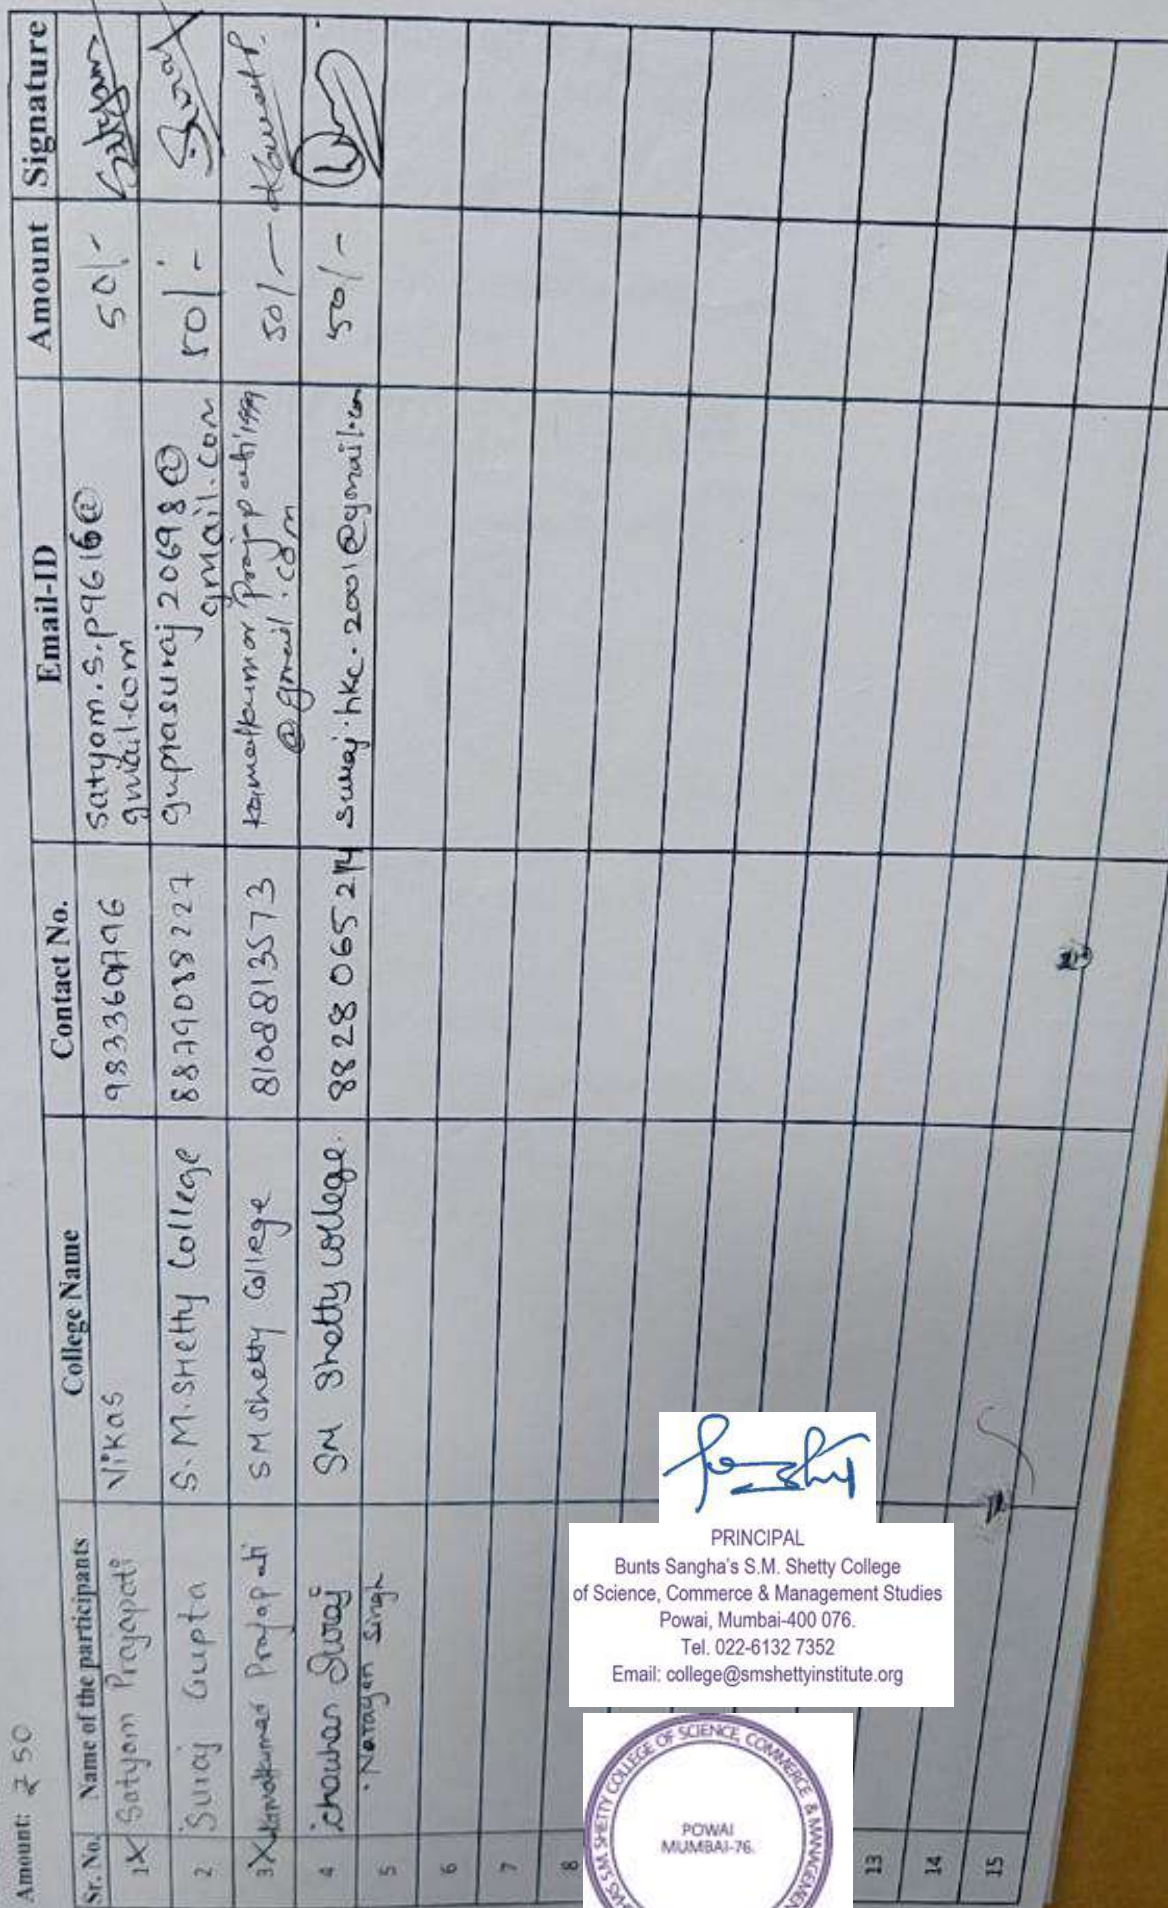 Amount: ₹ 50
Sr. No. Name of the participants College Name Contact No. Email-ID Amount Signature
1 X Satyam Prajapati Vikas satyam.s.p9616@ 50/- Satyam
gmail.com
2 Suraj Gupta S.M. SHetty College 8879088227 guptasuraj20698@ 50/- Suraj
gmail.com
3 X Kamalkumar Prajapati SM Shetty College 8108813573 kamalkumar prajapati1999 50/-
@gmail.com
4 chauhan Suraj SM Shetty college. 8828065214 suraj.hkc.2001@gmail.com 50/-
Narayan Singh
5
6
7
8
13
14
15
PRINCIPAL
Bunts Sangha's S.M. Shetty College
of Science, Commerce & Management Studies
Powai, Mumbai-400 076.
Tel. 022-6132 7352
Email: college@smshettyinstitute.org
S.M. SHETTY COLLEGE OF SCIENCE, COMMERCE & MANAGEMENT
POWAI
MUMBAI-76.